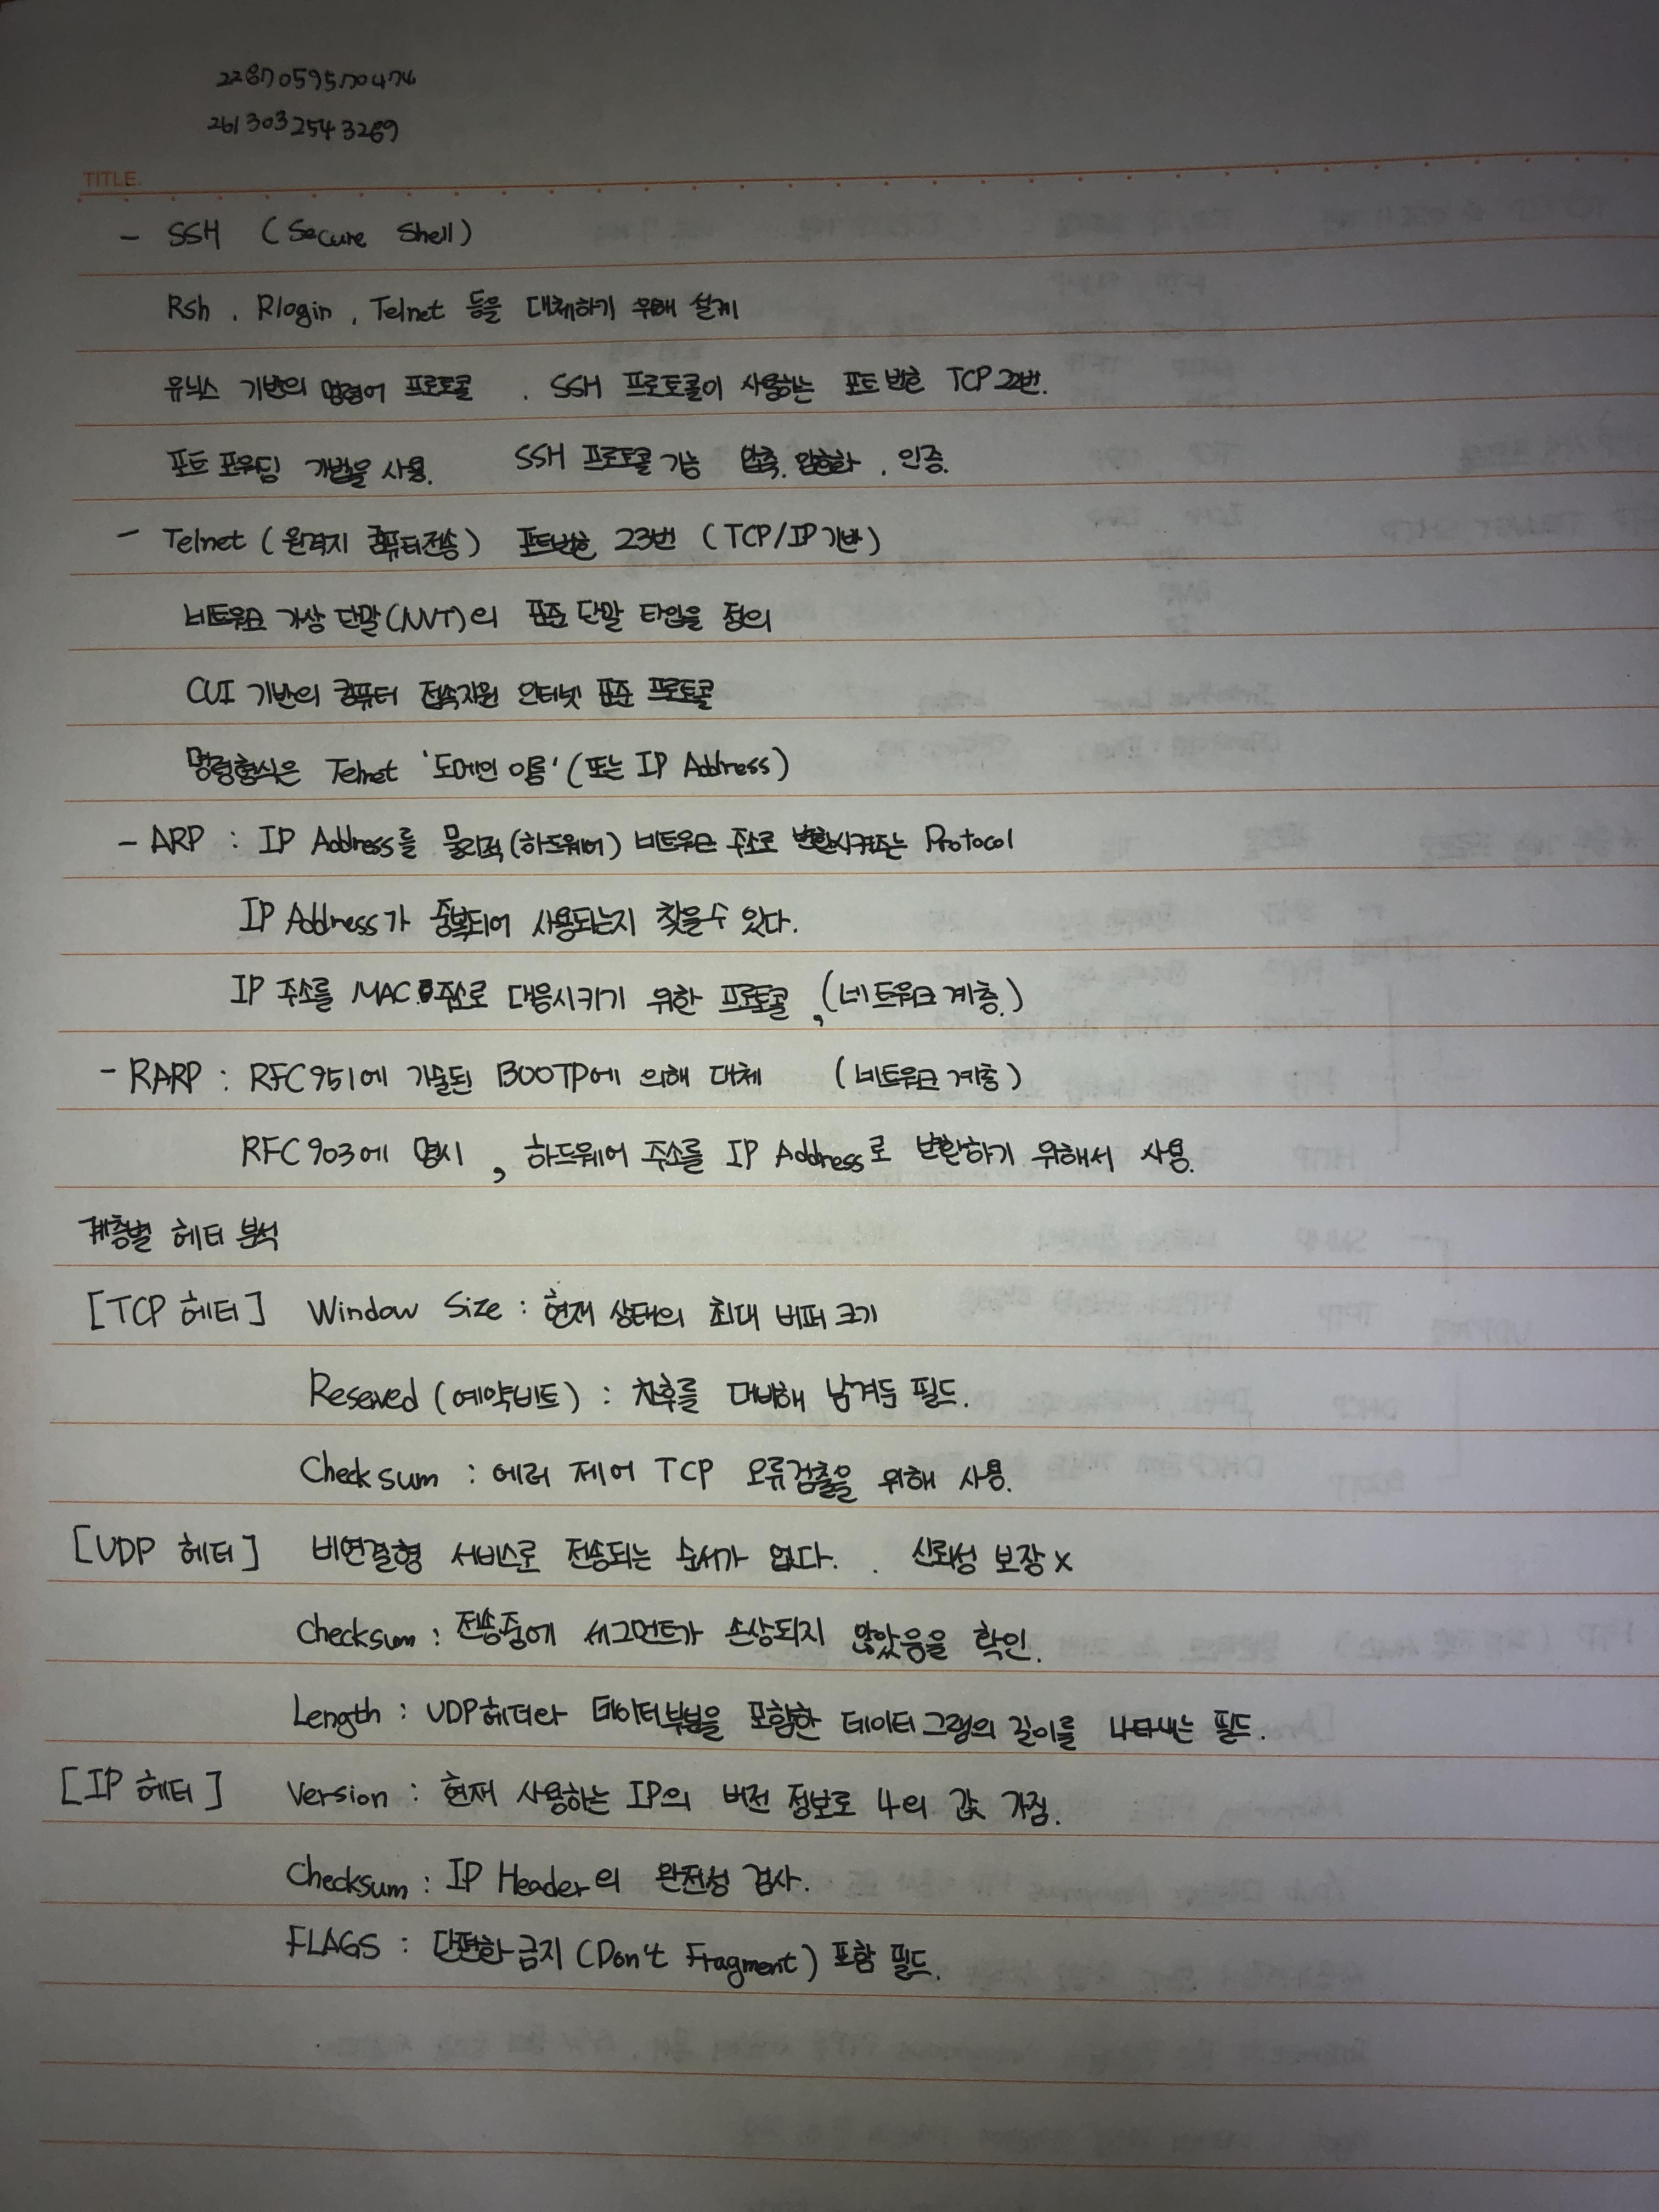 2287059570474
2613032543269
TITLE.
- SSH (Secure Shell)
Rsh, Rlogin, Telnet 등을 대체하기 위해 설계
유닉스 기반의 명령어 프로토콜. SSH 프로토콜이 사용하는 포트번호 TCP 22번.
포트 포워딩 기법을 사용. SSH 프로토콜 기능 압축, 암호화, 인증.
- Telnet (원격지 컴퓨터전송) 포트번호 23번 (TCP/IP기반)
네트워크 가상 단말(NVT)의 표준 단말 타입을 정의
CUI 기반의 컴퓨터 접속지원 인터넷 표준 프로토콜
명령형식은 Telnet '도메인 이름' (또는 IP Address)
- ARP : IP Address를 물리적(하드웨어) 네트워크 주소로 변환시켜주는 Protocol
IP Address가 중복되어 사용되는지 찾을수 있다.
IP 주소를 MAC 주소로 대응시키기 위한 프로토콜, (네트워크 계층.)
- RARP : RFC951에 기술된 BOOTP에 의해 대체 (네트워크 계층)
RFC903에 명시, 하드웨어 주소를 IP Address로 변환하기 위해서 사용.
계층별 헤터 분석
[TCP 헤터] Window Size : 현재 상태의 최대 버퍼 크기
Reserved (예약비트) : 차후를 대비해 남겨둔 필드.
Check sum : 에러 제어 TCP 오류검출을 위해 사용.
[UDP 헤터] 비연결형 서비스로 전송되는 순서가 없다. . 신뢰성 보장 x
Checksum : 전송중에 세그먼트가 손상되지 않았음을 확인.
Length : UDP헤더와 데이터부분을 포함한 데이터그램의 길이를 나타내는 필드.
[IP 헤터] Version : 현재 사용하는 IP의 버전 정보로 4의 값 가짐.
Checksum : IP Header의 완전성 검사.
FLAGS : 단편화금지 (Don't Fragment) 포함 필드.